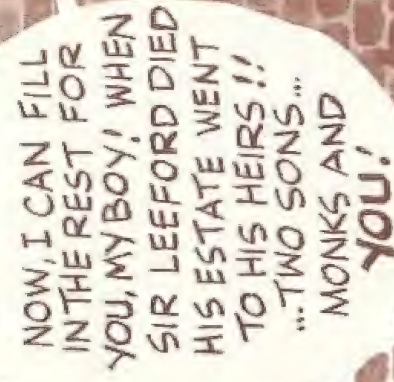 NOW, I CAN FILL
IN THE REST FOR
YOU, MY BOY! WHEN
SIR LEEFORD DIED
HIS ESTATE WENT
TO HIS HEIRS!!
...TWO SONS...
MONKS AND
YOU!